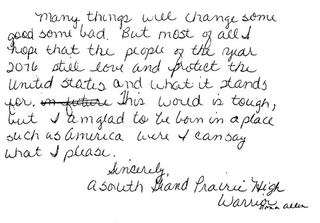 Many things will change some
good some bad. But most of all I
hope that the people of the year
2076 still love and protect the
United States and what it stands
for. in future This world is tough,
but I am glad to be born in a place
such as America were I can say
what I please.
Sincerely,
A South Grand Prairie High
Warrior